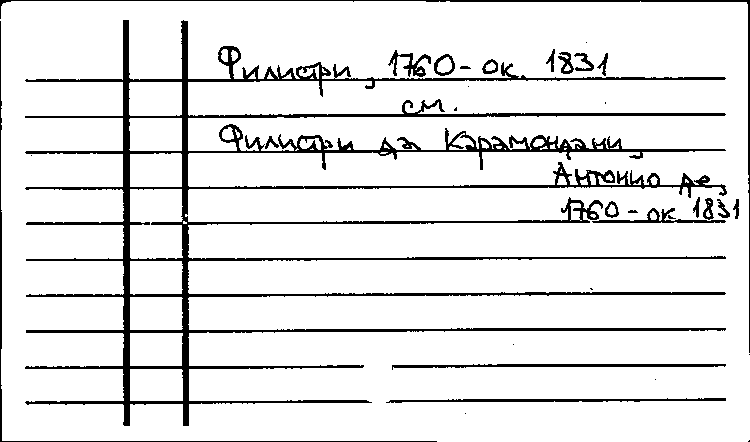 Филистри, 1760 - ок. 1831
см.
Филистри да Карамондани,
Антонио де,
1760 - ок. 1831